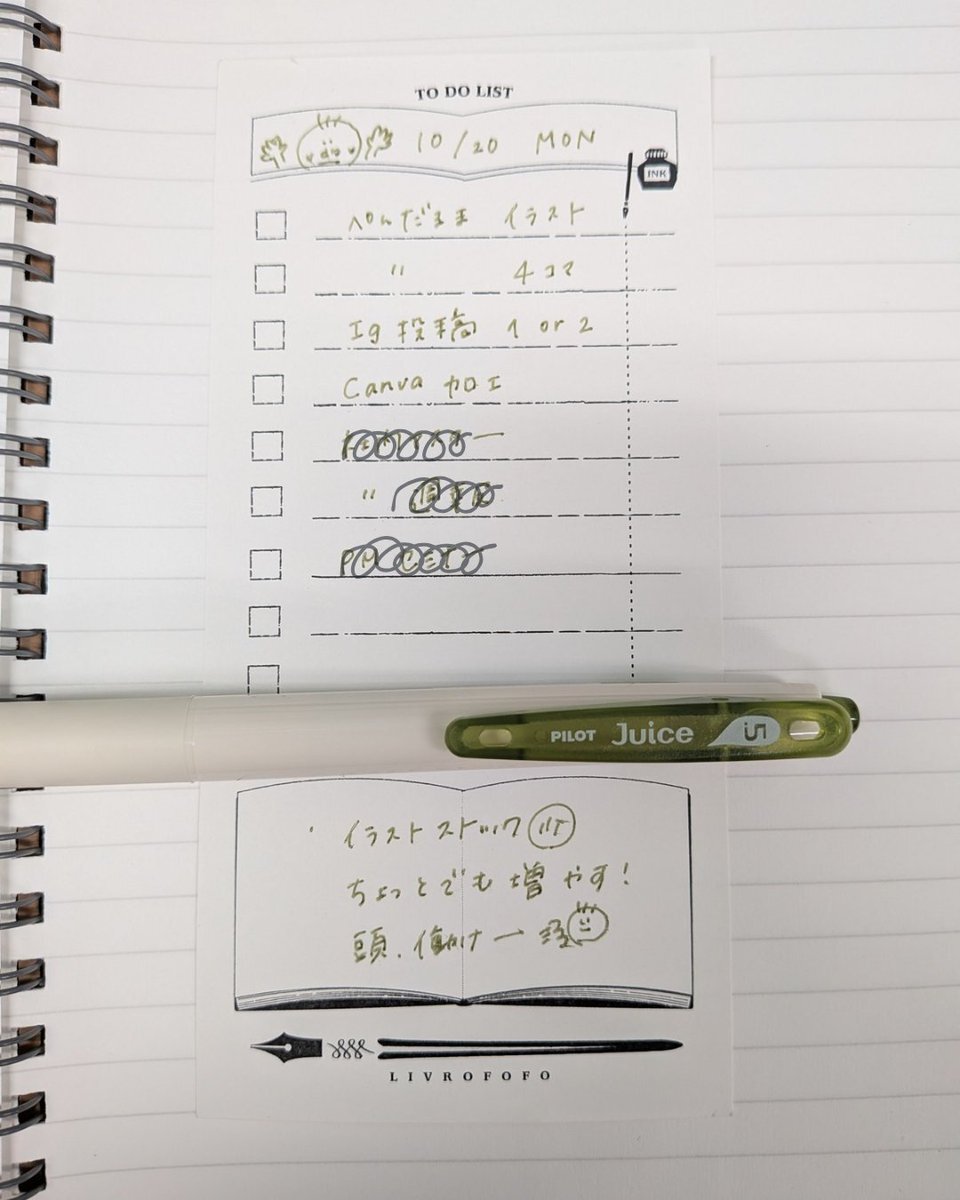 TO DO LIST
10/20 MON
INK
ぺんだまま イラスト
〃 4コマ
Ig 投稿 1 or 2
Canva 加工
〃
PILOT Juice
・イラスト ストック
ちょっとでも 増やす!
頭、働けー
LIVROFOFO